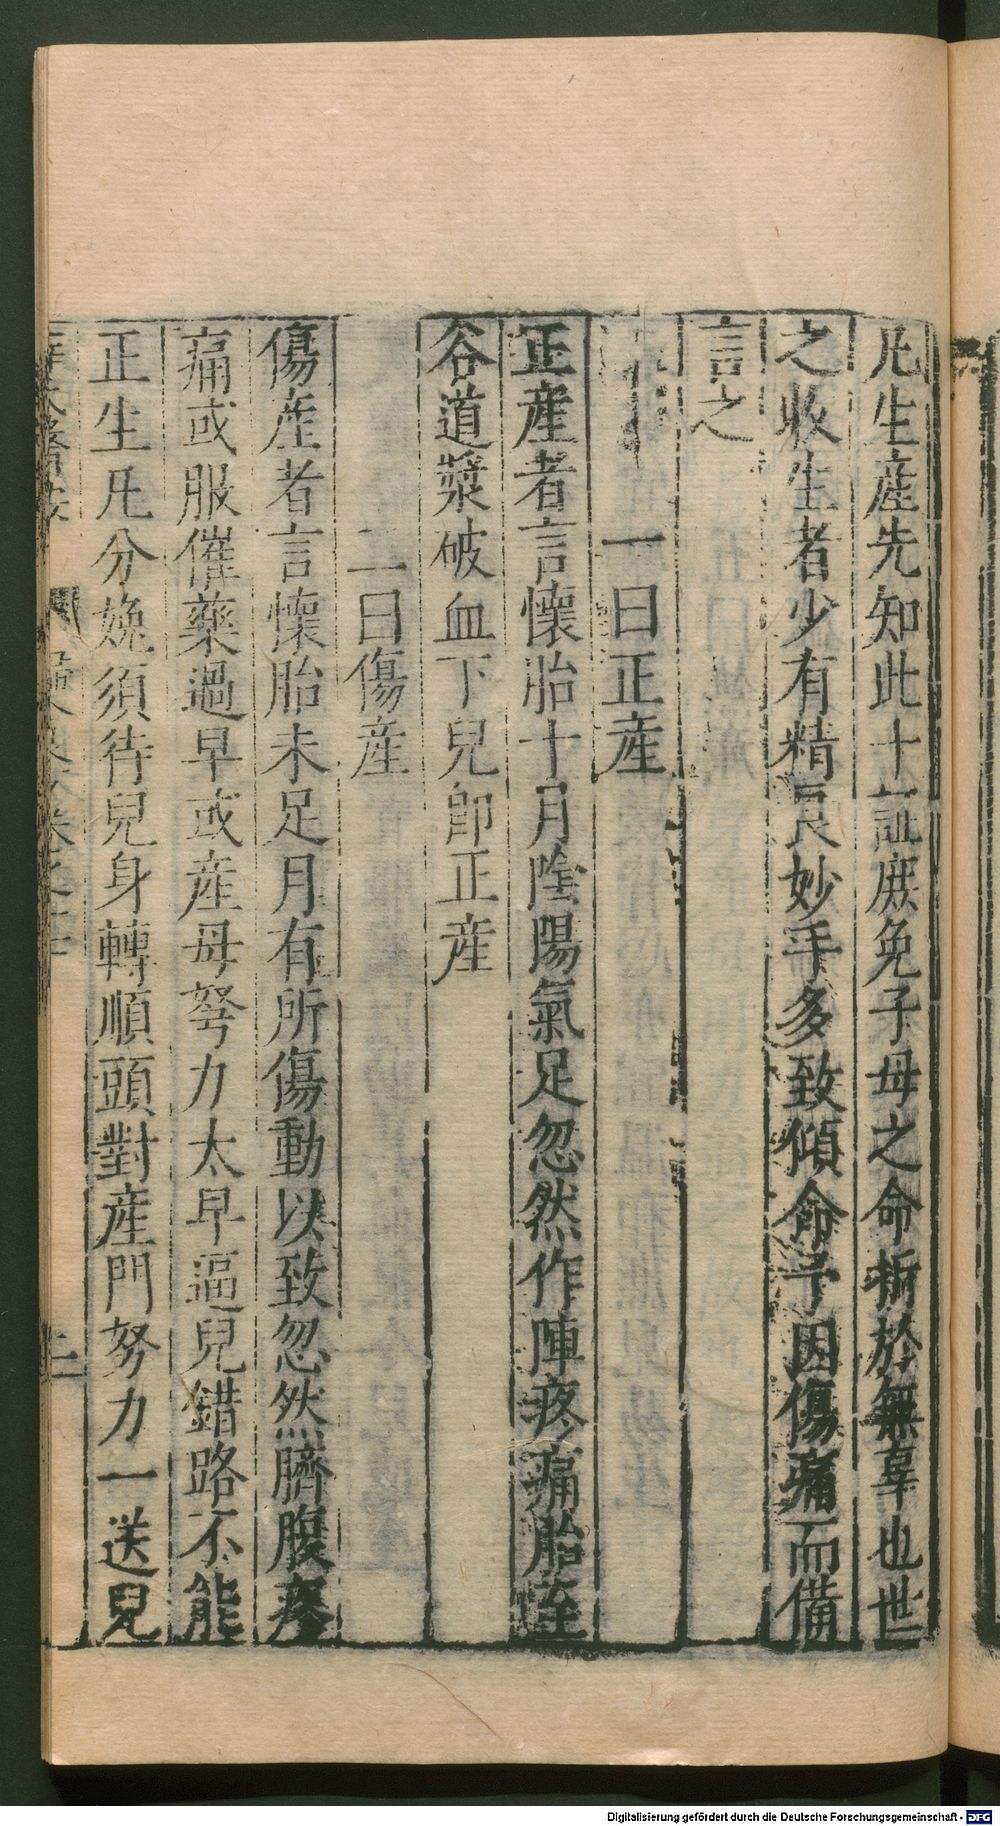 凡生產先知此十証庶免子母之命折於無辜也世
之收生者少有精良妙手多致傾命予因傷痛而備
言之
一曰正產
正產者言懷胎十月陰陽氣足忽然作陣疼痛胎至
谷道漿破血下兒卽正產
二曰傷產
傷產者言懷胎未足月有所傷動以致忽然臍腹疼
痛或服催藥過早或產母努力太早逼兒錯路不能
正生凡分娩須待兒身轉順頭對產門努力一送兒
薛氏醫按 婦人良方卷之十七 二
Digitalisierung gefördert durch die Deutsche Forschungsgemeinschaft - DFG